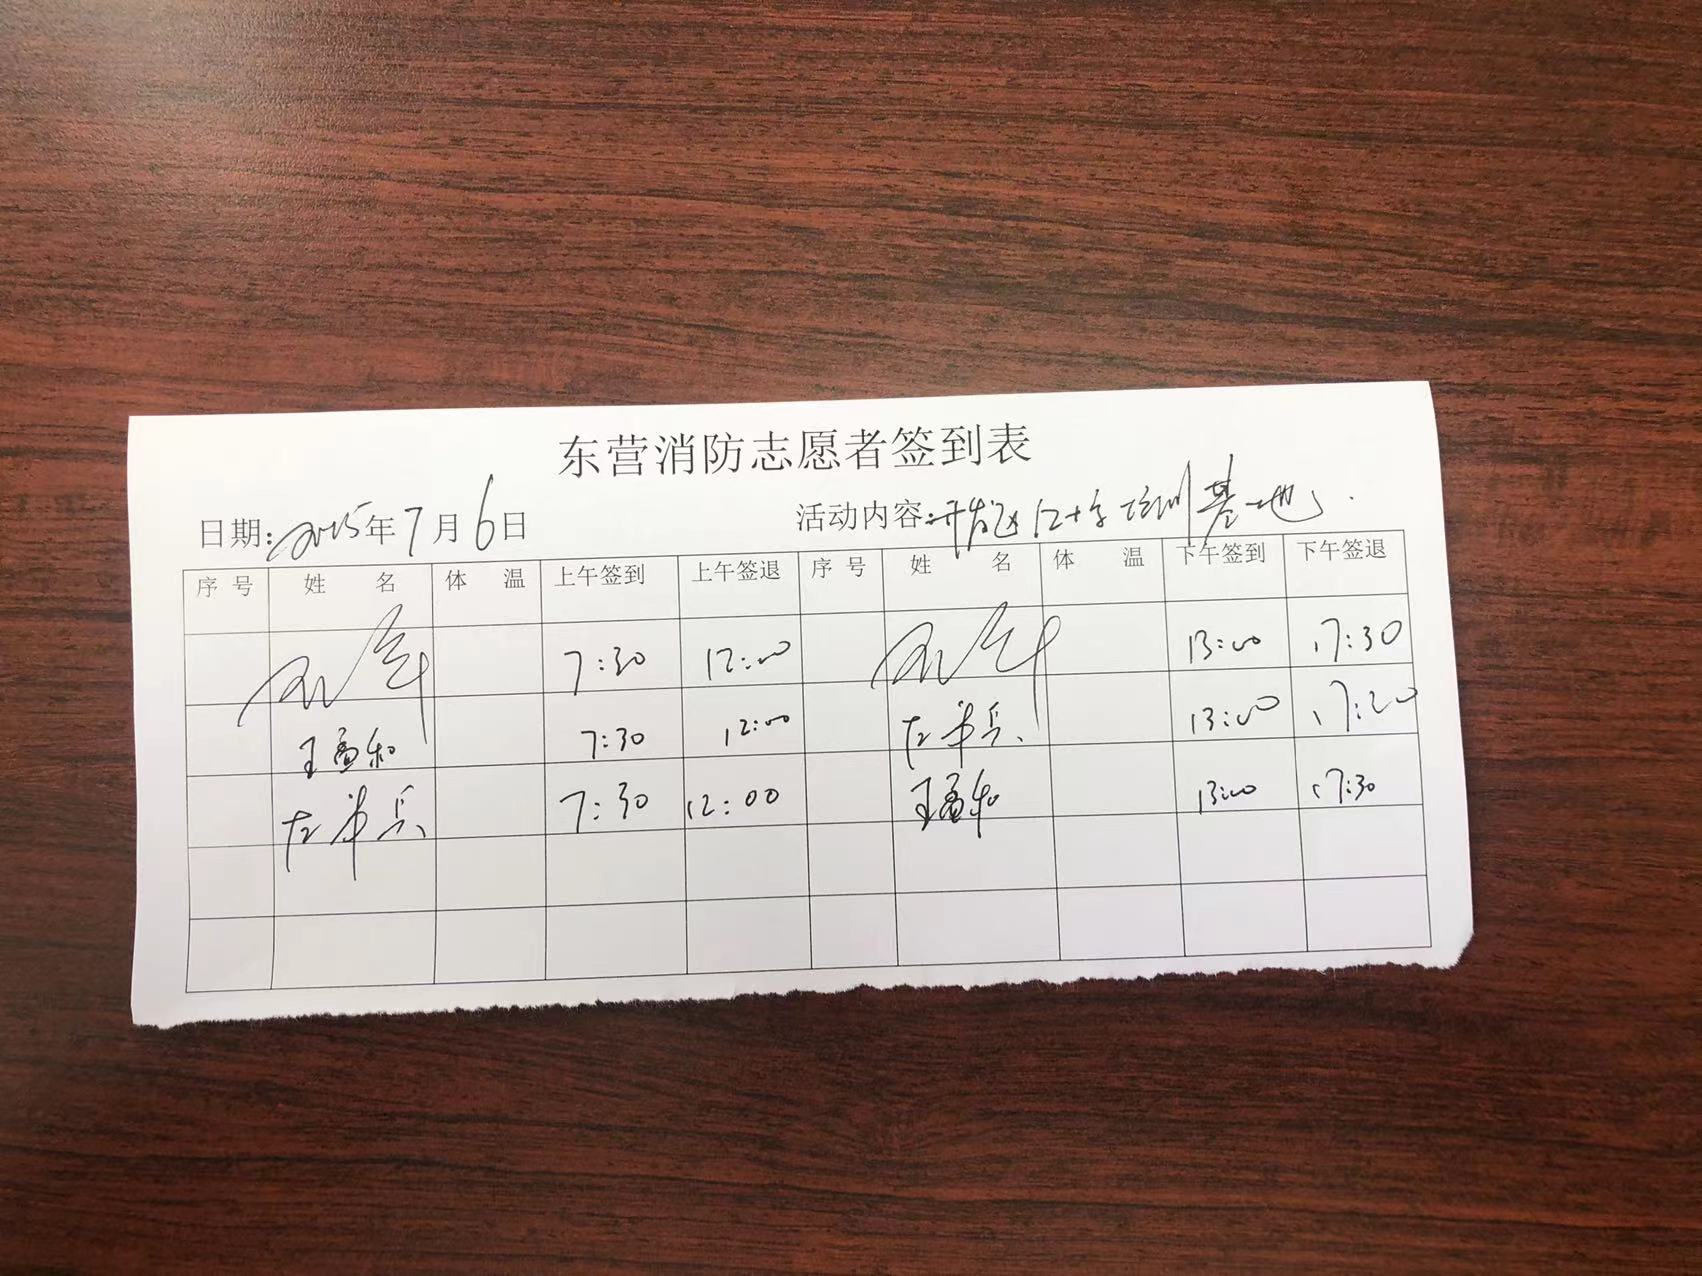 东营消防志愿者签到表
日期:2025年7月6日 活动内容:开发区红十字培训基地.
序号 姓名 体温 上午签到 上午签退 序号 姓名 体温 下午签到 下午签退
7:30 12:00 13:00 17:30
王孟和 7:30 12:00 左单兵 13:00 17:20
左单兵 7:30 12:00 王孟和 13:00 17:30